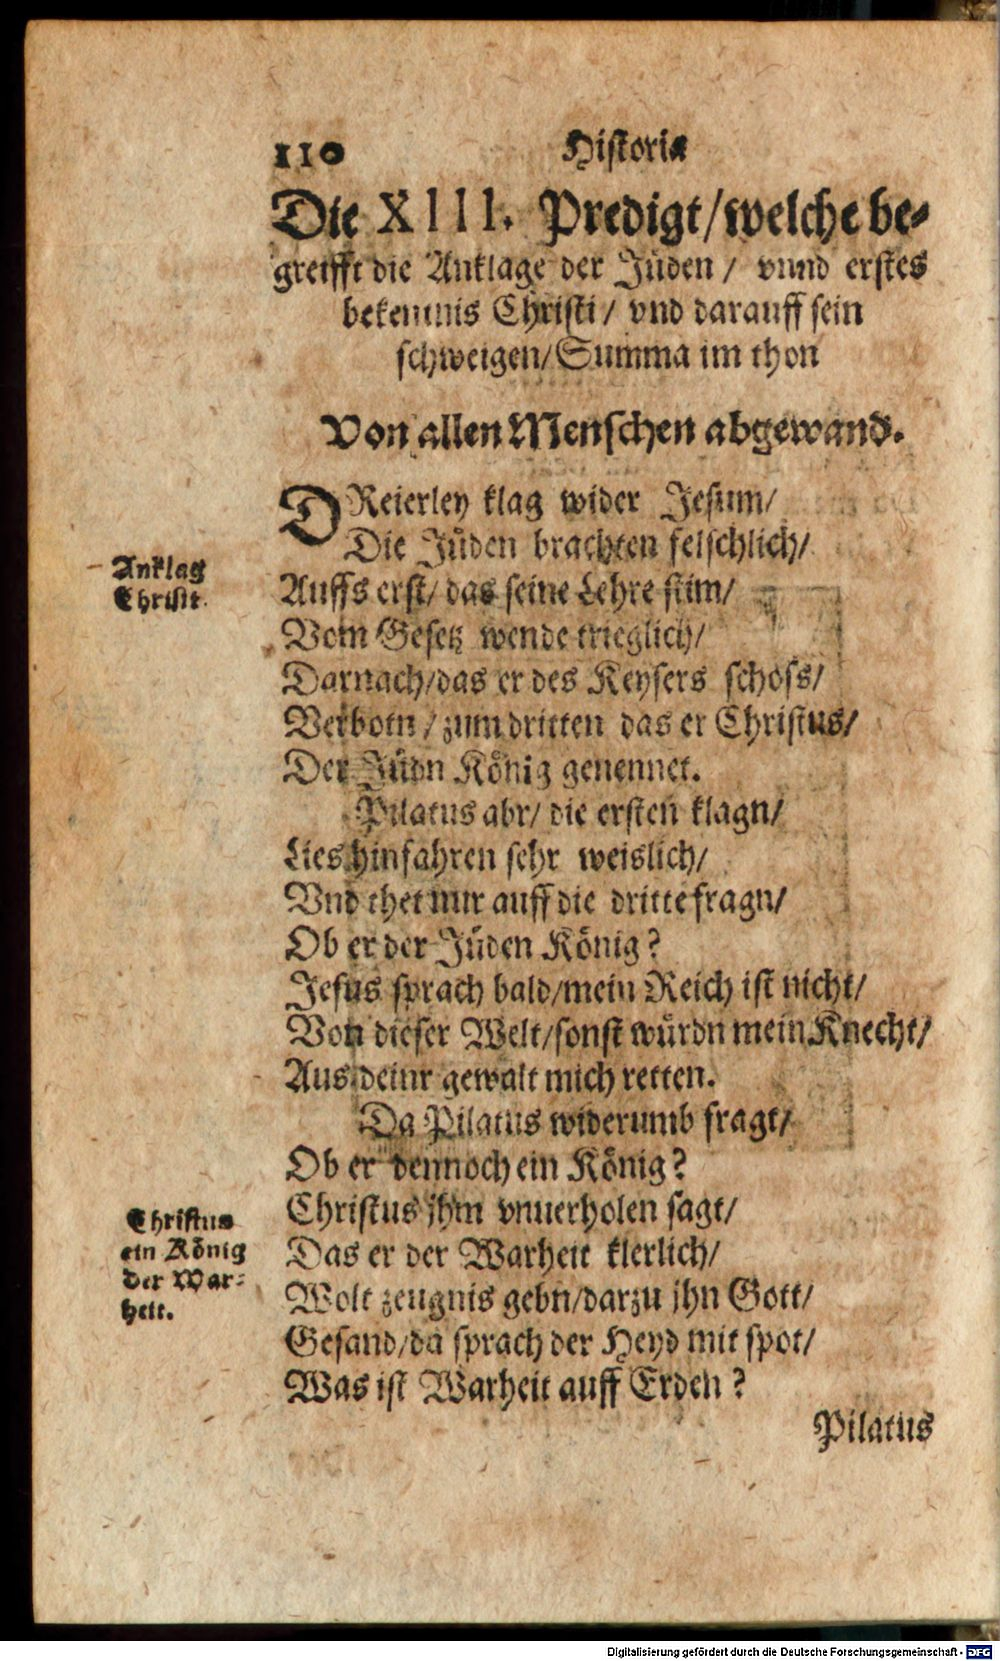 110 Historia
Die XIII. Predigt/welche be-
greifft die Anklage der Jüden / vnnd erstes
bekentnis Christi / vnd darauff sein
schweigen/Summa im thon
Von allen Menschen abgewand.
DReierley klag wider Jesum/
Die Jüden brachten felschlich/
Anklag
Christi.
Auffs erst/ das seine Lehre stim/
Vom Gesetz wende trieglich/
Darnach/das er des Keysers schoss/
Verbotn / zum dritten das er Christus/
Der Jüdn König genennet.
Pilatus abr/ die ersten klagn/
Lies hinfahren sehr weislich/
Vnd thet nur auff die dritte fragn/
Ob er der Jüden König?
Jesus sprach bald/mein Reich ist nicht/
Von dieser Welt/sonst würdn mein Knecht/
Aus deinr gewalt mich retten.
Da Pilatus widerumb fragt/
Ob er dennoch ein König?
Christus jhm vnuerholen sagt/
Christus
ein König
der War-
heit.
Das er der Warheit klerlich/
Wolt zeugnis gebn/darzu jhn Gott/
Gesand/da sprach der Heyd mit spot/
Was ist Warheit auff Erden?
Pilatus
Digitalisierung gefördert durch die Deutsche Forschungsgemeinschaft - DFG